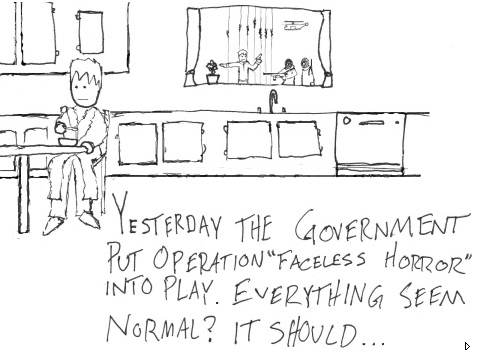 YESTERDAY THE GOVERNMENT
PUT OPERATION "FACELESS HORROR"
INTO PLAY. EVERYTHING SEEM
NORMAL? IT SHOULD...